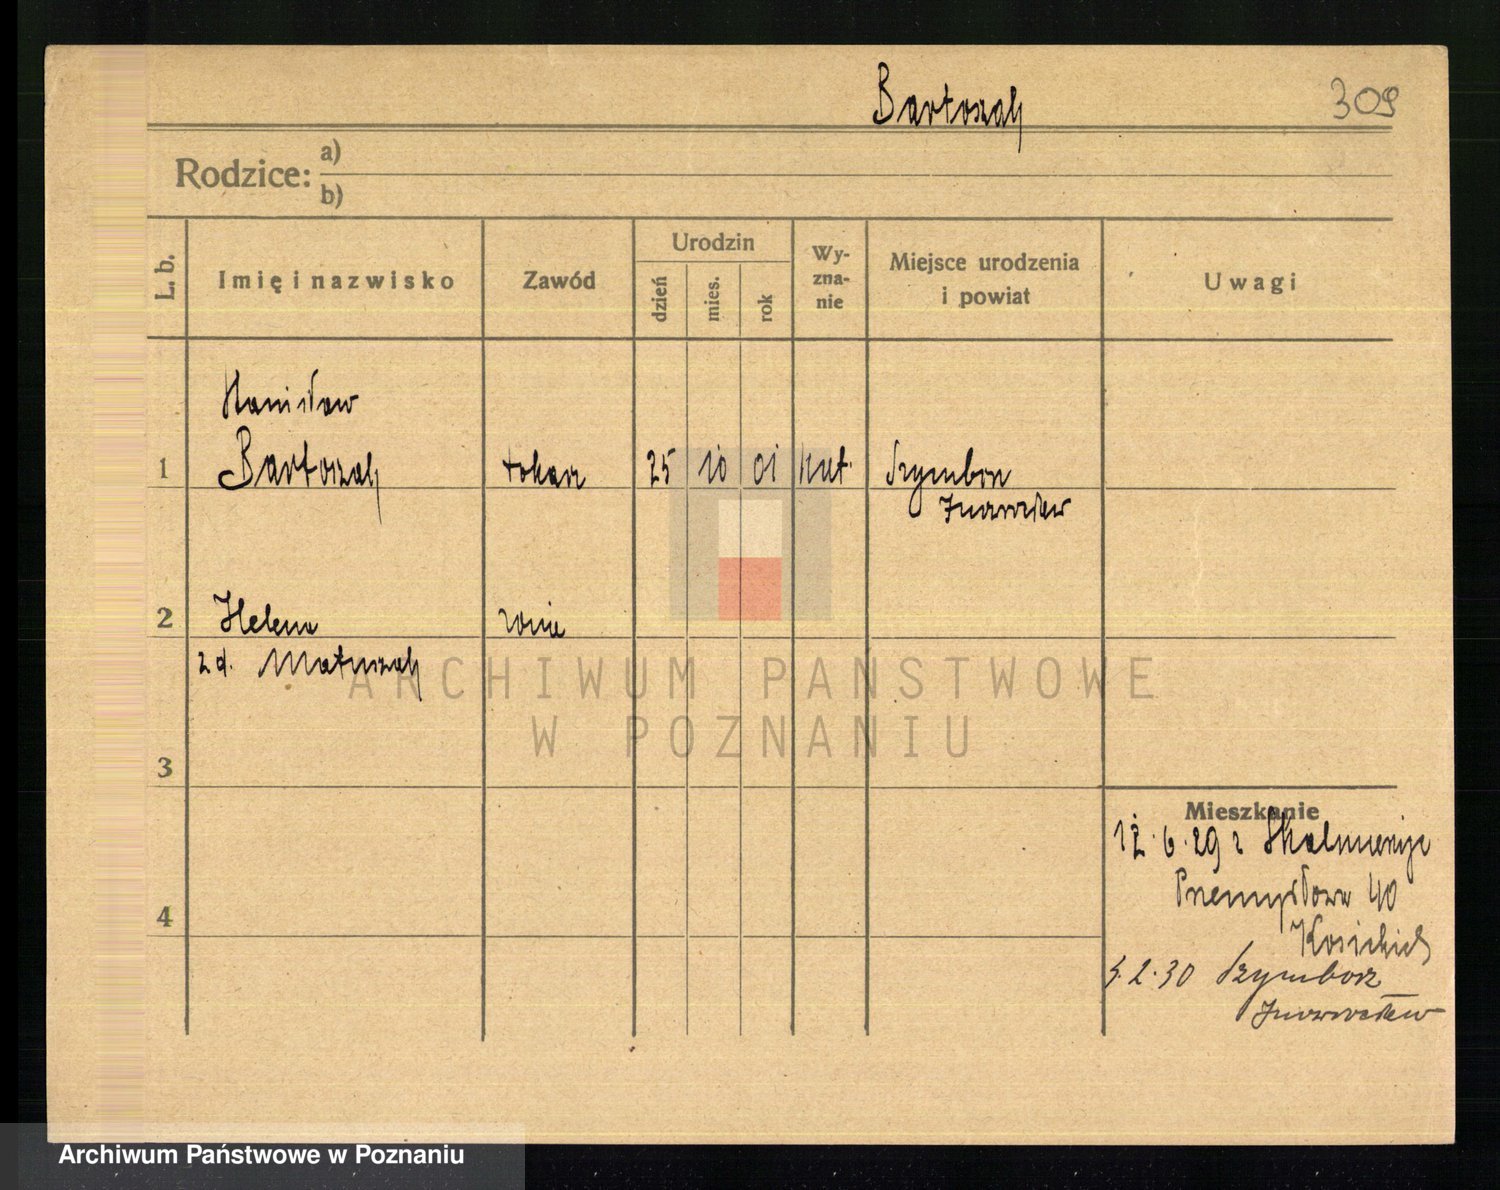 Bartoszak
309
Rodzice: a)
b)
L. b.
Imię i nazwisko
Zawód
Urodzin
dzień
mies.
rok
Wy-
zna-
nie
Miejsce urodzenia
i powiat
Uwagi
Stanisław
1 Bartoszak tokarz 25 10 01 kat. Szymborze
Inowrocław
2 Helena żona
z d. Matuszak
ARCHIWUM PAŃSTWOWE
W POZNANIU
3
Mieszkanie
12.6.29 z Skalmierzyc
Przemysłowa 40
4
5.2.30 Szymborze
Inowrocław
Archiwum Państwowe w Poznaniu